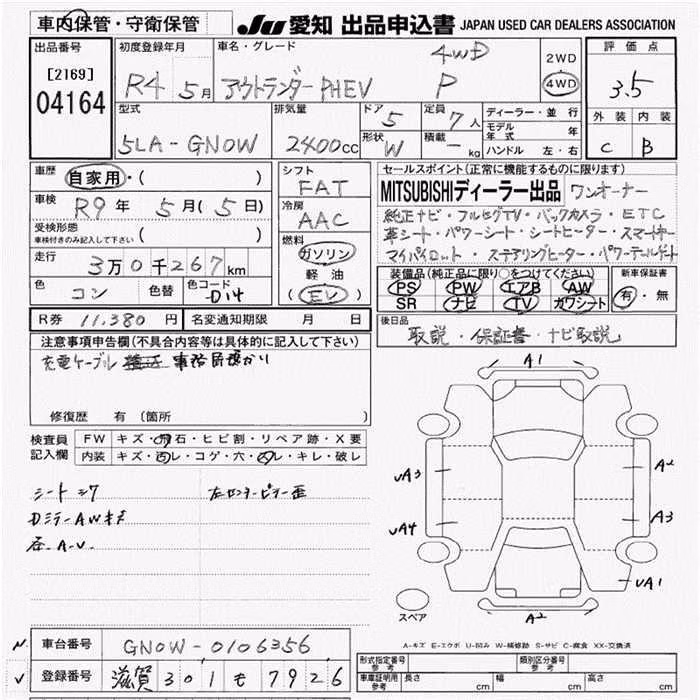 車内保管・守衛保管
JU 愛知 出品申込書 JAPAN USED CAR DEALERS ASSOCIATION
出品番号
[2169]
04164
初度登録年月
R4 5月
車名・グレード
アウトランダーPHEV
4WD
P
2WD
4WD
評価点
3.5
外装 内装
C B
型式
5LA-GN0W
排気量
2400cc
ドア 5
形状 W
定員 7人
積載 - kg
ディーラー・並行
モデル年式 年
ハンドル 左・右
車歴 自家用・( )
車検 R9年 5月(5日)
受検形態
車検付きのみ記入して下さい ( )
走行 3万0千267km
色 コン 色替 色コード D14
シフト
FAT
冷房
AAC
燃料
ガソリン
軽油
(EV)
セールスポイント(正常に機能するものに限ります)
MITSUBISHIディーラー出品 ワンオーナー
純正ナビ・フルセグTV・バックカメラ・ETC
革シート・パワーシート・シートヒーター・スマートキー
マイパイロット・ステアリングヒーター・パワーテールゲート
装備品(純正品に限り○をつけてください)
PS PW エアB AW
SR ナビ TV カワシート
新車保証書
有・無
後日品
取説・保証書・ナビ取説
R券 11,380円 名変通知期限 月 日
注意事項申告欄(不具合内容等は具体的に記入して下さい)
充電ケーブル 事務局預かり
修復歴 有(箇所 )
検査員
記入欄
FW キズ・飛石・ヒビ割・リペア跡・X要
内装 キズ・凹レ・コゲ・穴・スレ・キレ・破レ
シートシワ
左センターピラー歪
DミラーAWキズ
各A・U
A1
UA3
A2
UA4
A3
UA1
A2
スペア
A-キズ E-エクボ U-凹み W-補修跡 S-サビ C-腐食 XX-交換済
車台番号 GN0W-0106356
登録番号 滋賀 301 も 7926
形式指定番号
参考
類別区分番号
参考
車庫証明用
参考
長さ cm 幅 cm 高さ cm